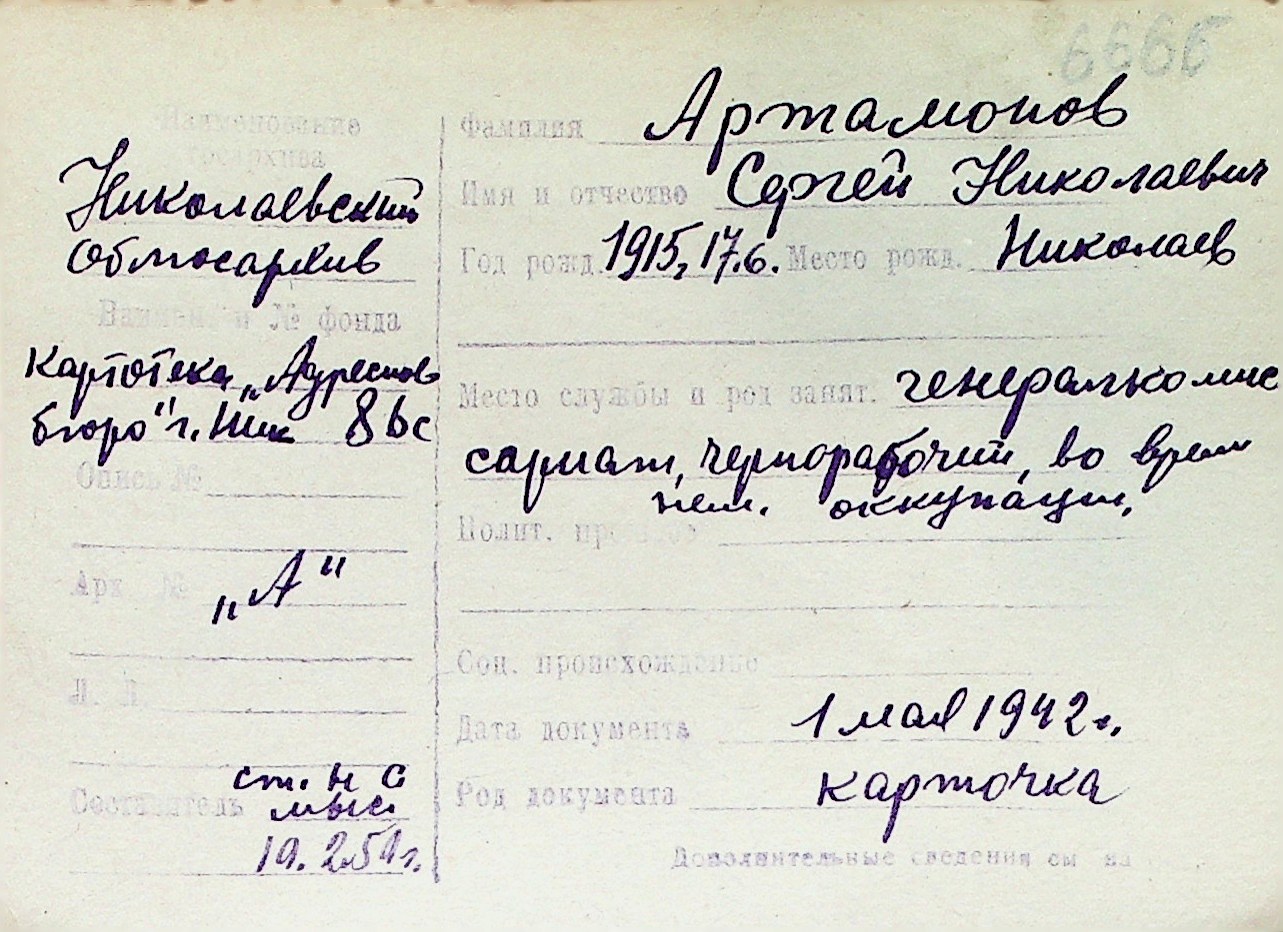 6666
Наименование
госархива
Николаевский
Облгосархив
Наимен. и № фонда
Картотека „Адресного
бюро" г. Ник
Опись №
Арх. №
„А"
Л. Л.
Составитель
ст. н с
19. 2.51г.
Фамилия Артамонов
Имя и отчество Сергей Николаевич
Год рожд. 1915, 17.6. Место рожд. Николаев
Место службы и род занят. генералкомис
сариат, чернорабочий, во врем
нем. оккупации.
Полит. прошлое
Соц. происхождение
Дата документа 1 мая 1942 г.
Род документа карточка
Дополнительные сведения см на